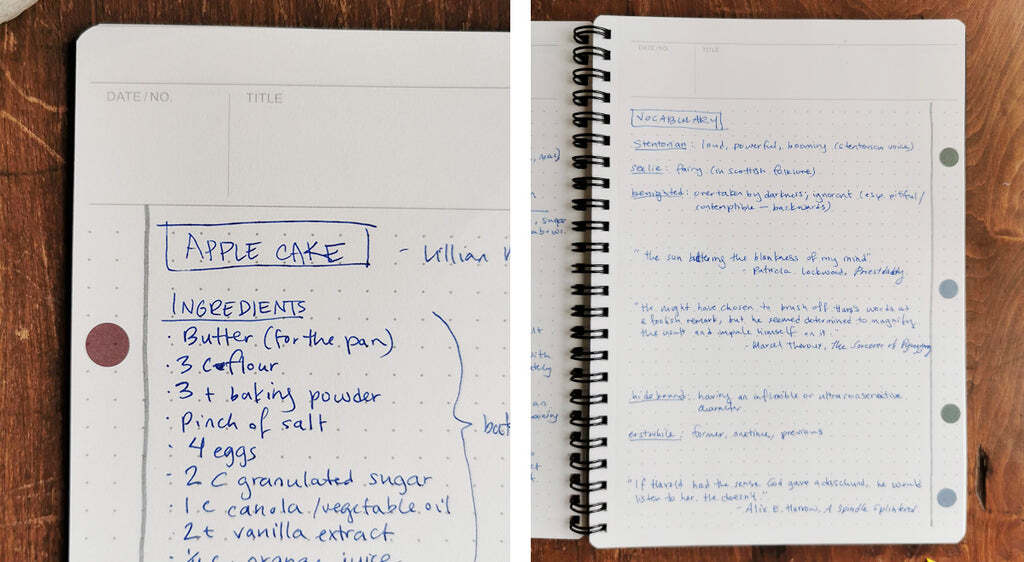 DATE/NO.
TITLE
APPLE CAKE
- Lillian
INGREDIENTS
· Butter (for the pan)
· 3 C flour
· 3 t baking powder
· Pinch of salt
· 4 eggs
· 2 C granulated sugar
· 1 c canola/vegetable oil
· 2 t vanilla extract
orange juice
DATE/NO.
TITLE
VOCABULARY
Stentorian: loud, powerful, booming (stentorian voice)
seelie: fairy (in scottish folklore)
benighted: overtaken by darkness; ignorant (esp. pitiful/
contemptible — backwards)
"the sun buttering the blankness of my mind"
- Patricia Lockwood, Priestdaddy
"He might have chosen to brush off Hara's words as
a foolish remark, but he seemed determined to magnify
the insult and impale himself on it."
- Marcel Theroux, The Sorcerer of Pyongyang
hidebound: having an inflexible or ultraconservative
character
erstwhile: former, onetime, previous
"If Harold had the sense God gave a dachshund, he would
listen to her. He doesn't."
- Alix E. Harrow, A Spindle Splintered